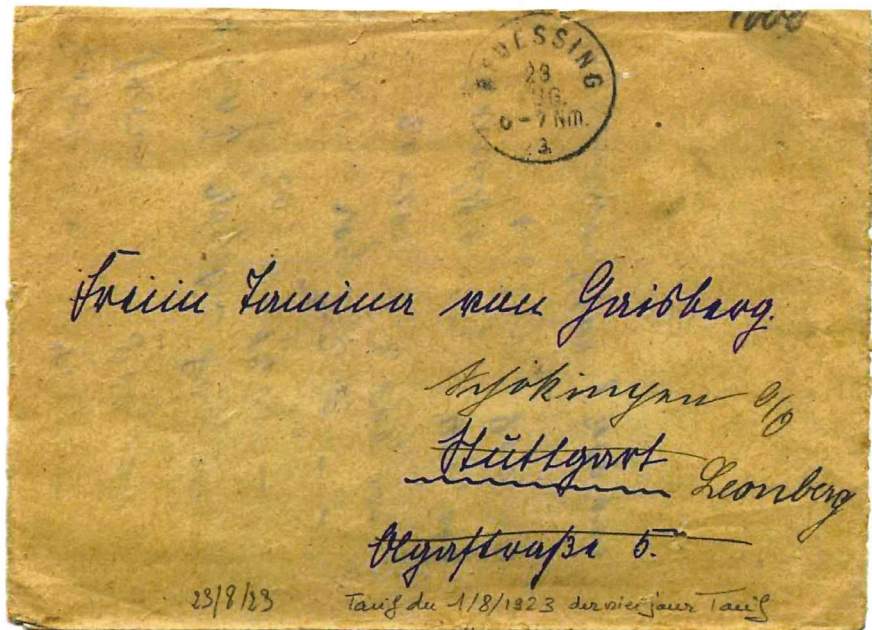 ESSING
23
UG.
-7 Nm.
Freiin Tamina von Gaisberg.
Schökingen O/A
Stuttgart Leonberg
Olgastraße 5.
23/8/23 Tarif du 1/8/1923 dernier jour Tarif